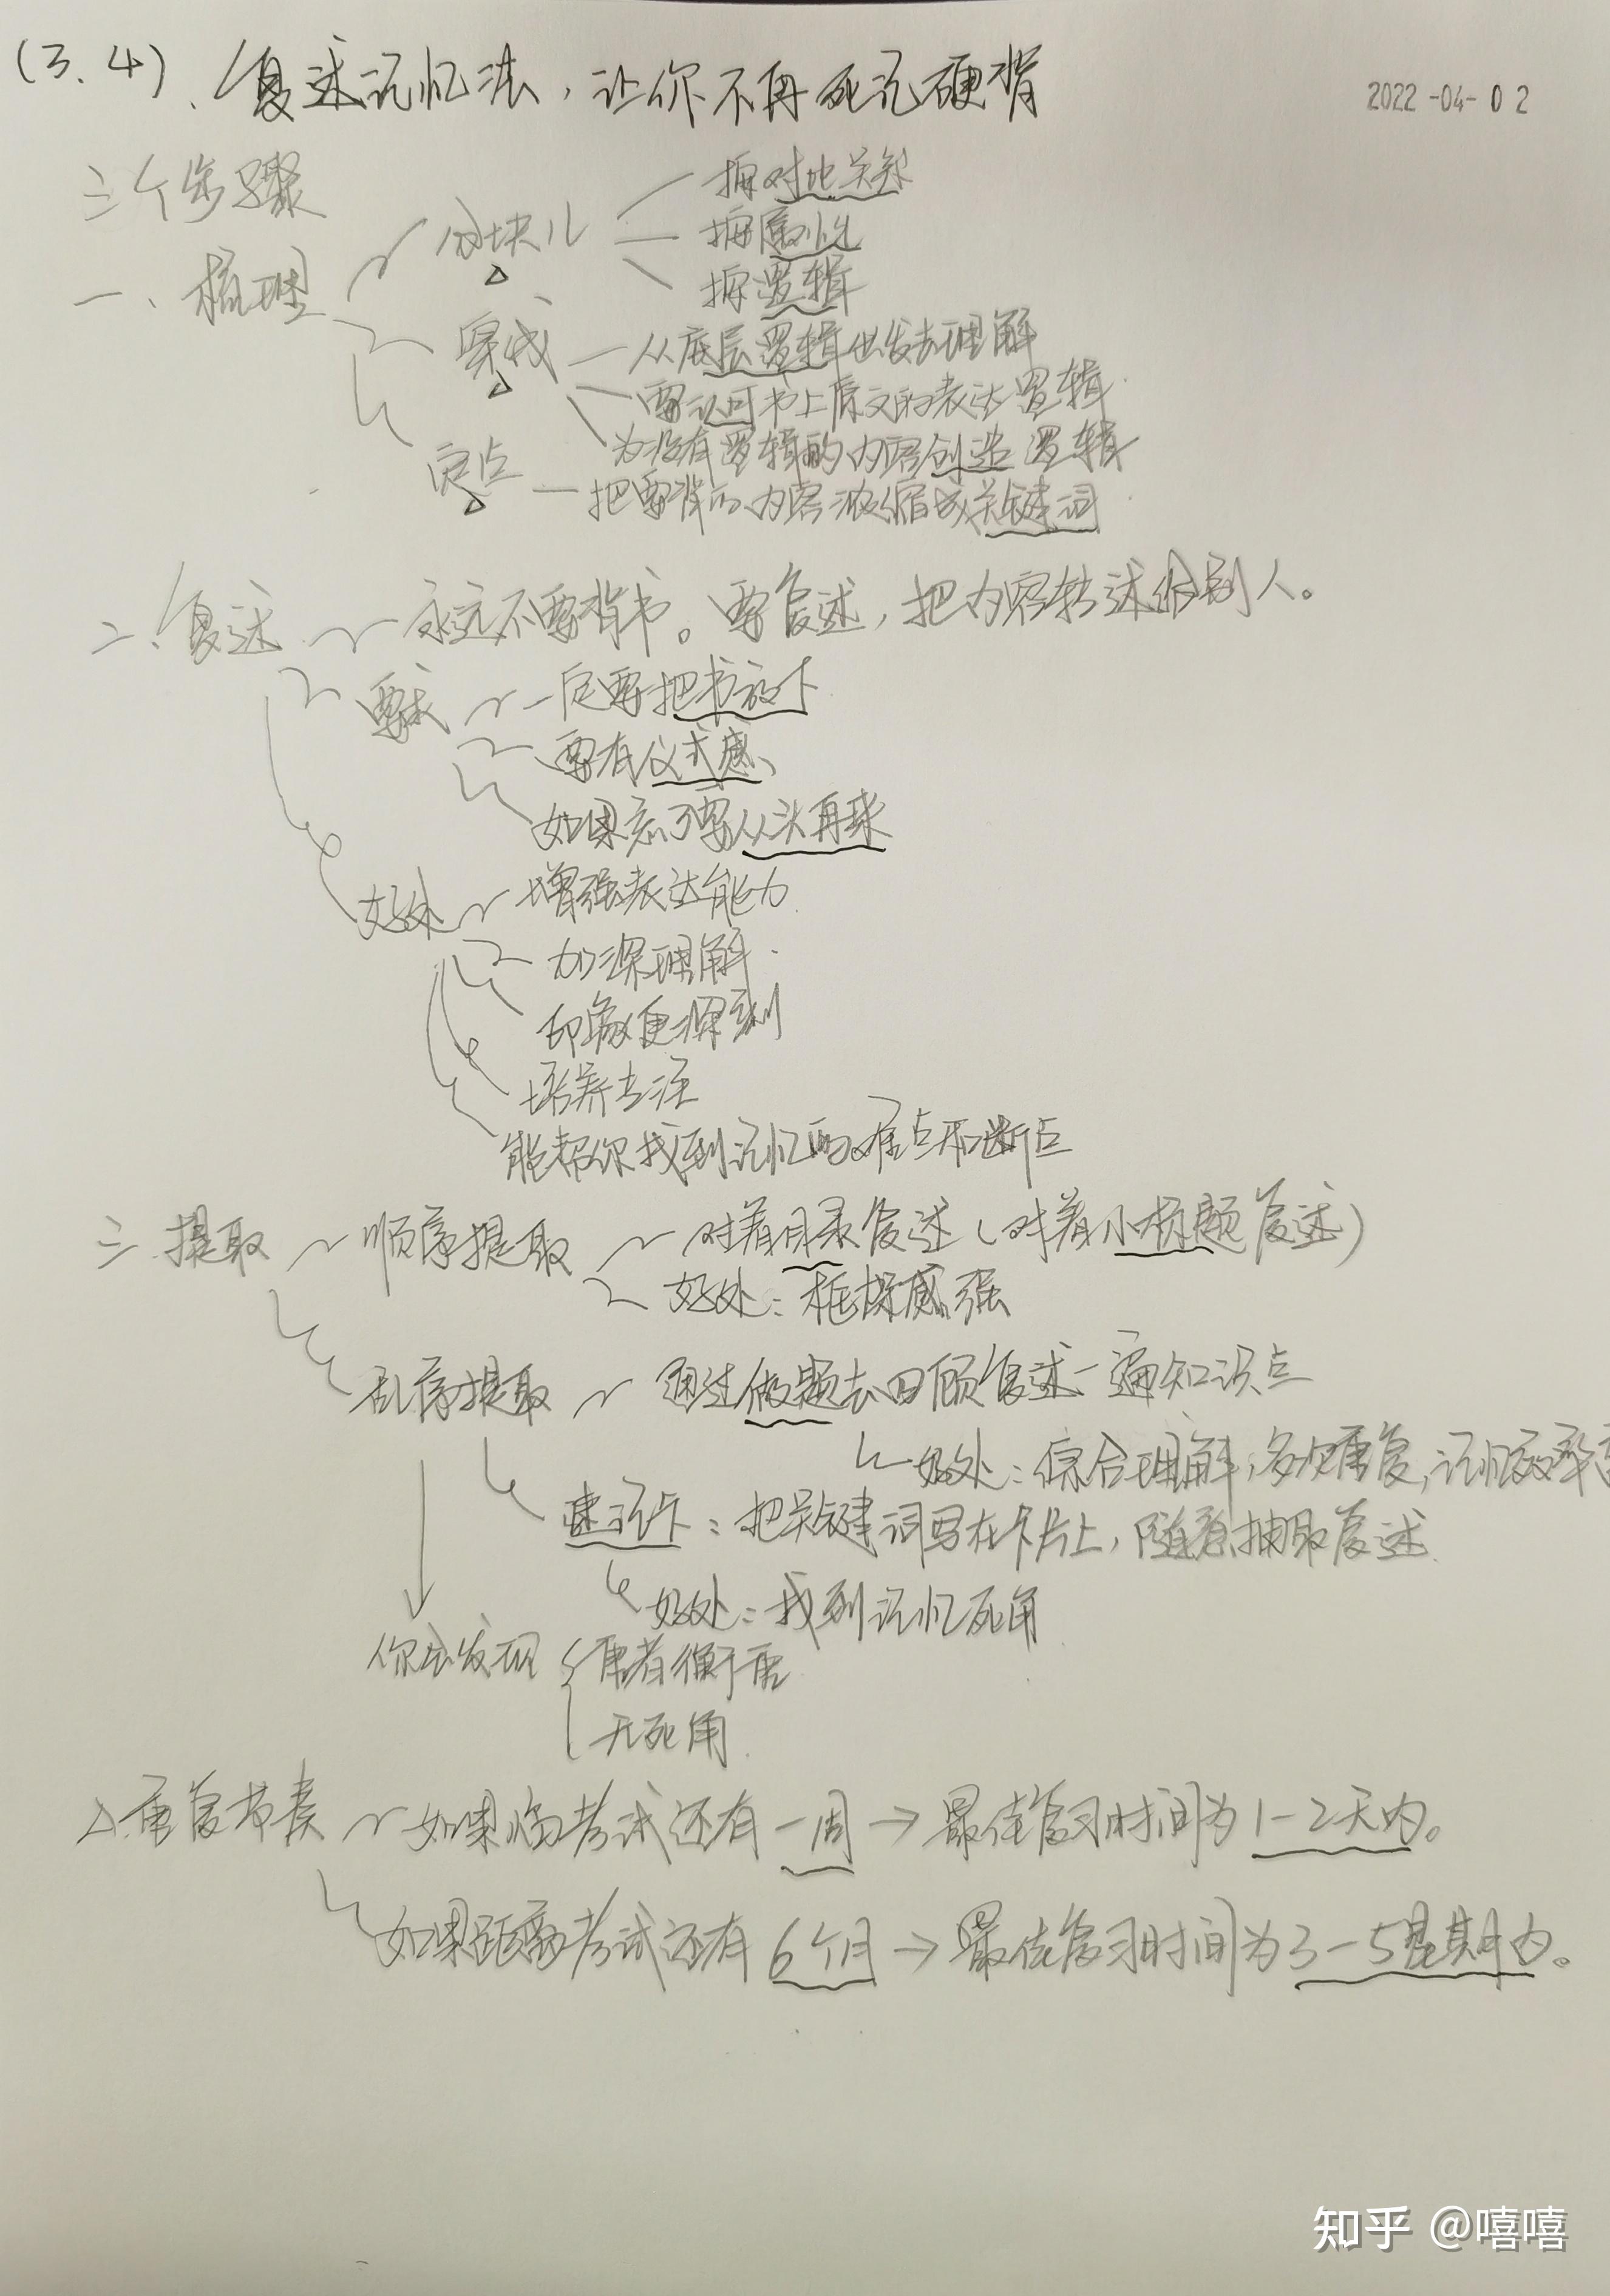 (3.4)、复述记忆法，让你不再死记硬背
2022-04-02
三个步骤
按对比关系
分块儿
按属性
一、梳理
按逻辑
穿线
从底层逻辑出发去理解
要认可书上原文的表达逻辑
为没有逻辑的内容创造逻辑
定点
把要背的内容浓缩成关键词
二、复述
永远不要背书。要复述，把内容转述给别人。
要求
一定要把书放下
要有仪式感
如果忘了要从头再来
好处
增强表达能力
加深理解
印象更深刻
培养专注
能帮你找到记忆的盲点和断点
三、提取
顺序提取
对着目录复述(对着小标题复述)
好处：框架感强
乱序提取
通过做题去回顾复述一遍知识点
好处：综合理解，多次重复，记忆效率高
速记卡：把关键词写在卡片上，随意抽取复述
好处：找到记忆死角
你会发现
重者恒重
无死角
△重复节奏
如果临考试还有一周→最佳复习时间为1-2天内。
如果距离考试还有6个月→最佳复习时间为3-5星期内。
知乎 @嘻嘻